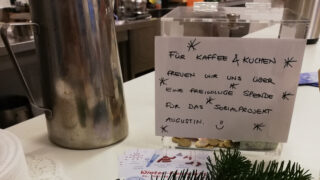 FÜR KAFFEE & KUCHEN
FREUEN WIR UNS ÜBER
EINE FREIWILLIGE SPENDE
FÜR DAS SOZIALPROJEKT
AUGUSTIN.